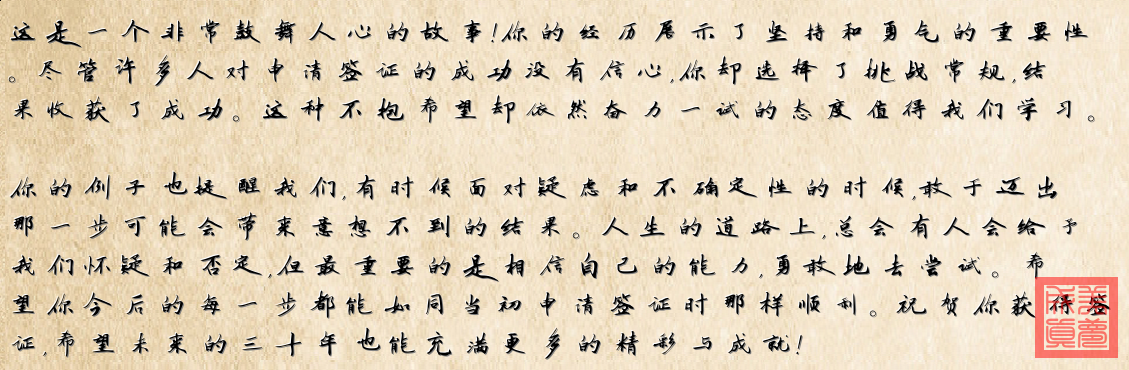 这是一个非常鼓舞人心的故事!你的经历展示了坚持和勇气的重要性
。尽管许多人对申请签证的成功没有信心,你却选择了挑战常规,结
果收获了成功。这种不抱希望却依然奋力一试的态度值得我们学习。
你的例子也提醒我们,有时候面对疑虑和不确定性的时候,敢于迈出
那一步可能会带来意想不到的结果。人生的道路上,总会有人会给予
我们怀疑和否定,但最重要的是相信自己的能力,勇敢地去尝试。希
望你今后的每一步都能如同当初申请签证时那样顺利。祝贺你获得签
证,希望未来的三十年也能充满更多的精彩与成就!